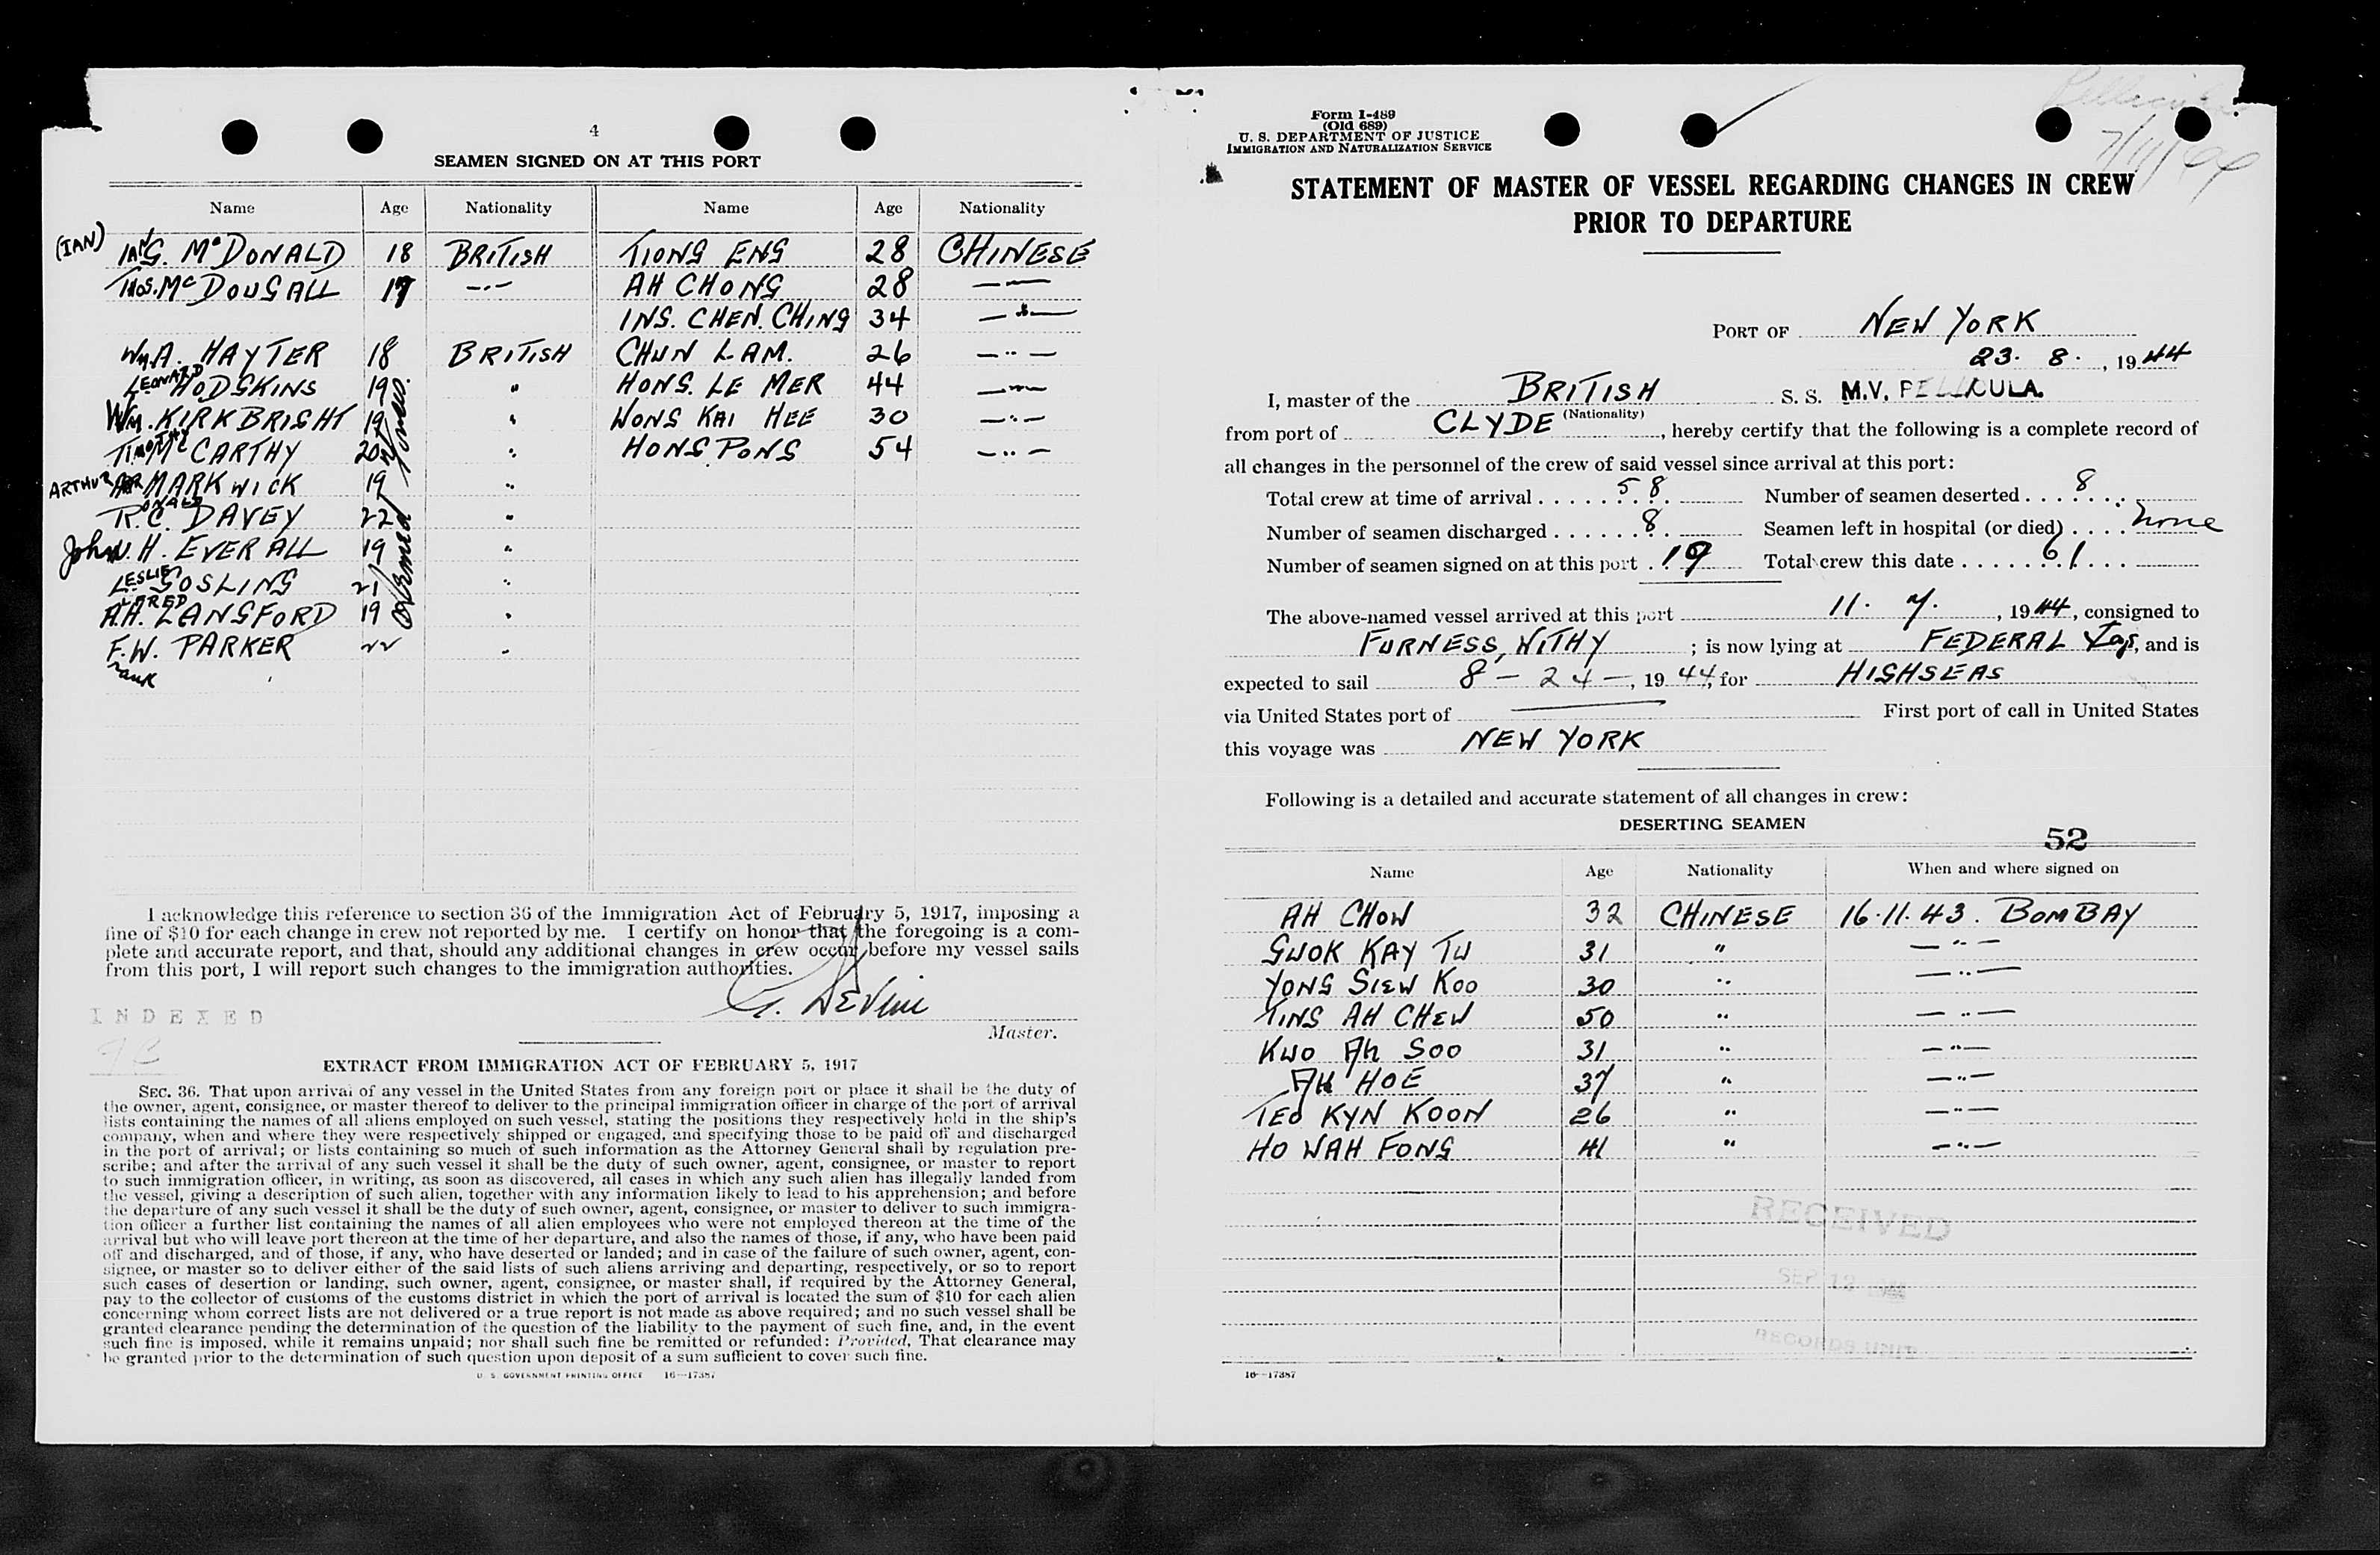 4
SEAMEN SIGNED ON AT THIS PORT
Name Age Nationality Name Age Nationality
(IAN) IAN G. McDONALD 18 BRITISH TIONG ENG 28 CHINESE
THOS. McDOUGALL 17 —·— AH CHONG 28 ——
ING. CHEN. CHING 34 —"—
Wm A. HAYTER 18 BRITISH CHUN LAM. 26 —"—
LEONARD HODGKINS 19 " HONG. LE MER 44 —"—
WM. KIRKBRIGHT 19 " WONG KAI HEE 30 —"—
TIMOTHY McCARTHY 20 " HONG PONG 54 —"—
ARTHUR MARKWICK 19 "
RONALD C. DAVEY 22 "
John H. EVERALL 19 "
LESLIE GOSLING 21 "
ALFRED H. LANGFORD 19 "
F.W. PARKER 22 "
Frank
I acknowledge this reference to section 36 of the Immigration Act of February 5, 1917, imposing a
fine of $10 for each change in crew not reported by me. I certify on honor that the foregoing is a com-
plete and accurate report, and that, should any additional changes in crew occur before my vessel sails
from this port, I will report such changes to the immigration authorities.
G. Devine
INDEXED
Master.
EXTRACT FROM IMMIGRATION ACT OF FEBRUARY 5, 1917
SEC. 36. That upon arrival of any vessel in the United States from any foreign port or place it shall be the duty of
the owner, agent, consignee, or master thereof to deliver to the principal immigration officer in charge of the port of arrival
lists containing the names of all aliens employed on such vessel, stating the positions they respectively hold in the ship's
company, when and where they were respectively shipped or engaged, and specifying those to be paid off and discharged
in the port of arrival; or lists containing so much of such information as the Attorney General shall by regulation pre-
scribe; and after the arrival of any such vessel it shall be the duty of such owner, agent, consignee, or master to report
to such immigration officer, in writing, as soon as discovered, all cases in which any such alien has illegally landed from
the vessel, giving a description of such alien, together with any information likely to lead to his apprehension; and before
the departure of any such vessel it shall be the duty of such owner, agent, consignee, or master to deliver to such immigra-
tion officer a further list containing the names of all alien employees who were not employed thereon at the time of the
arrival but who will leave port thereon at the time of her departure, and also the names of those, if any, who have been paid
off and discharged, and of those, if any, who have deserted or landed; and in case of the failure of such owner, agent, con-
signee, or master so to deliver either of the said lists of such aliens arriving and departing, respectively, or so to report
such cases of desertion or landing, such owner, agent, consignee, or master shall, if required by the Attorney General,
pay to the collector of customs of the customs district in which the port of arrival is located the sum of $10 for each alien
concerning whom correct lists are not delivered or a true report is not made as above required; and no such vessel shall be
granted clearance pending the determination of the question of the liability to the payment of such fine, and, in the event
such fine is imposed, while it remains unpaid; nor shall such fine be remitted or refunded: Provided, That clearance may
be granted prior to the determination of such question upon deposit of a sum sufficient to cover such fine.
U. S. GOVERNMENT PRINTING OFFICE 16—17387
Form I-489
(Old 689)
U. S. DEPARTMENT OF JUSTICE
IMMIGRATION AND NATURALIZATION SERVICE
7/11/44
STATEMENT OF MASTER OF VESSEL REGARDING CHANGES IN CREW
PRIOR TO DEPARTURE
PORT OF NEW YORK
23. 8. , 1944
I, master of the BRITISH S. S. M.V. PELLICULA.
(Nationality)
from port of CLYDE , hereby certify that the following is a complete record of
all changes in the personnel of the crew of said vessel since arrival at this port:
Total crew at time of arrival . . . . . 58 Number of seamen deserted . . . . 8
Number of seamen discharged . . . . . . 8 Seamen left in hospital (or died) . . . . none
Number of seamen signed on at this port . . 19 Total crew this date . . . . . . 61
The above-named vessel arrived at this port 11. 7. , 1944, consigned to
FURNESS, WITHY ; is now lying at FEDERAL , and is
expected to sail 8 – 24 – , 1944, for HIGHSEAS
via United States port of —— First port of call in United States
this voyage was NEW YORK
Following is a detailed and accurate statement of all changes in crew:
DESERTING SEAMEN
52
Name Age Nationality When and where signed on
AH CHOW 32 CHINESE 16.11.43. BOMBAY
GWOK KAY TU 31 " —"—
YONG SIEW KOO 30 " —"—
TING AH CHEW 50 " —"—
KWO AH SOO 31 " —"—
AH HOE 37 " —"—
TEO KYN KOON 26 " —"—
HO WAH FONG 41 " —"—
RECEIVED
SEP 12
RECORDS UNIT
16—17387